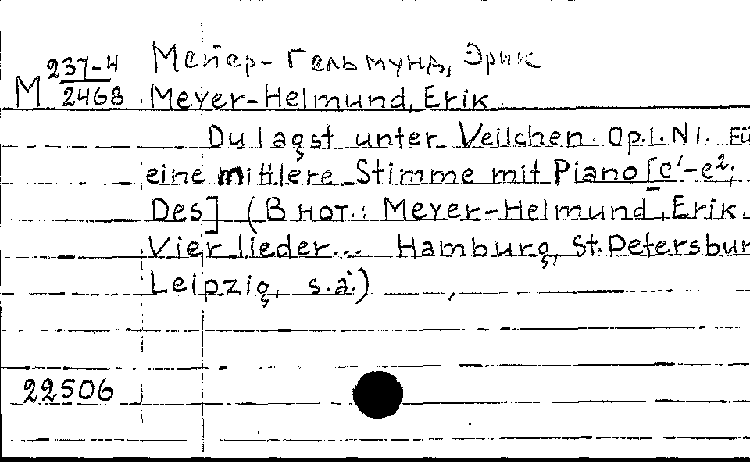 М 237-4/2468 Мейер-Гельмунд, Эрик
Meyer-Helmund, Erik
Du lagst unter Veilchen. Op.1. N1. Fü
eine mittlere Stimme mit Piano [c'-e²;
Des] (В нот.: Meyer-Helmund, Erik.
Vier lieder... Hamburg, St. Petersbur
Leipzig, s.a.)
22506